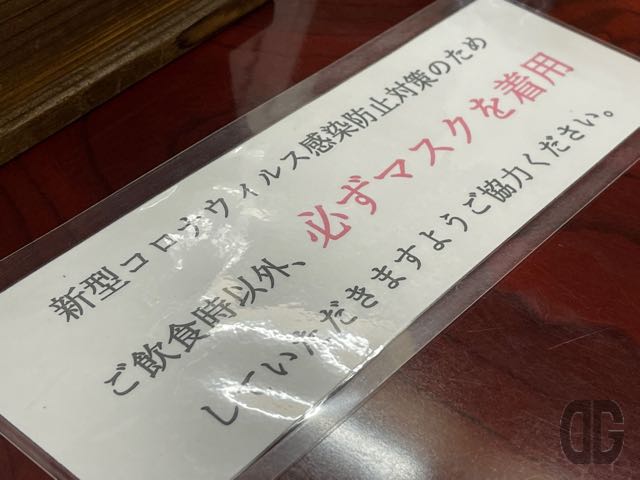 新型コロナウィルス感染防止対策のため
ご飲食時以外、必ずマスクを着用
していただきますようご協力ください。
DG